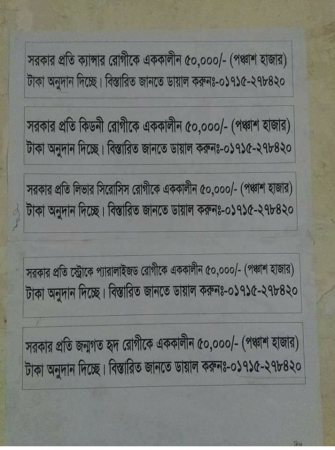 সরকার প্রতি ক্যান্সার রোগীকে এককালীন ৫০,০০০/- (পঞ্চাশ হাজার)
টাকা অনুদান দিচ্ছে। বিস্তারিত জানতে ডায়াল করুনঃ-০১৭১৫-২৭৮৪২০
সরকার প্রতি কিডনী রোগীকে এককালীন ৫০,০০০/- (পঞ্চাশ হাজার)
টাকা অনুদান দিচ্ছে। বিস্তারিত জানতে ডায়াল করুনঃ-০১৭১৫-২৭৮৪২০
সরকার প্রতি লিভার সিরোসিস রোগীকে এককালীন ৫০,০০০/- (পঞ্চাশ হাজার)
টাকা অনুদান দিচ্ছে। বিস্তারিত জানতে ডায়াল করুনঃ-০১৭১৫-২৭৮৪২০
সরকার প্রতি স্ট্রোকে প্যারালাইজড রোগীকে এককালীন ৫০,০০০/- (পঞ্চাশ হাজার)
টাকা অনুদান দিচ্ছে। বিস্তারিত জানতে ডায়াল করুনঃ-০১৭১৫-২৭৮৪২০
সরকার প্রতি জন্মগত হৃদ রোগীকে এককালীন ৫০,০০০/- (পঞ্চাশ হাজার)
টাকা অনুদান দিচ্ছে। বিস্তারিত জানতে ডায়াল করুনঃ-০১৭১৫-২৭৮৪২০